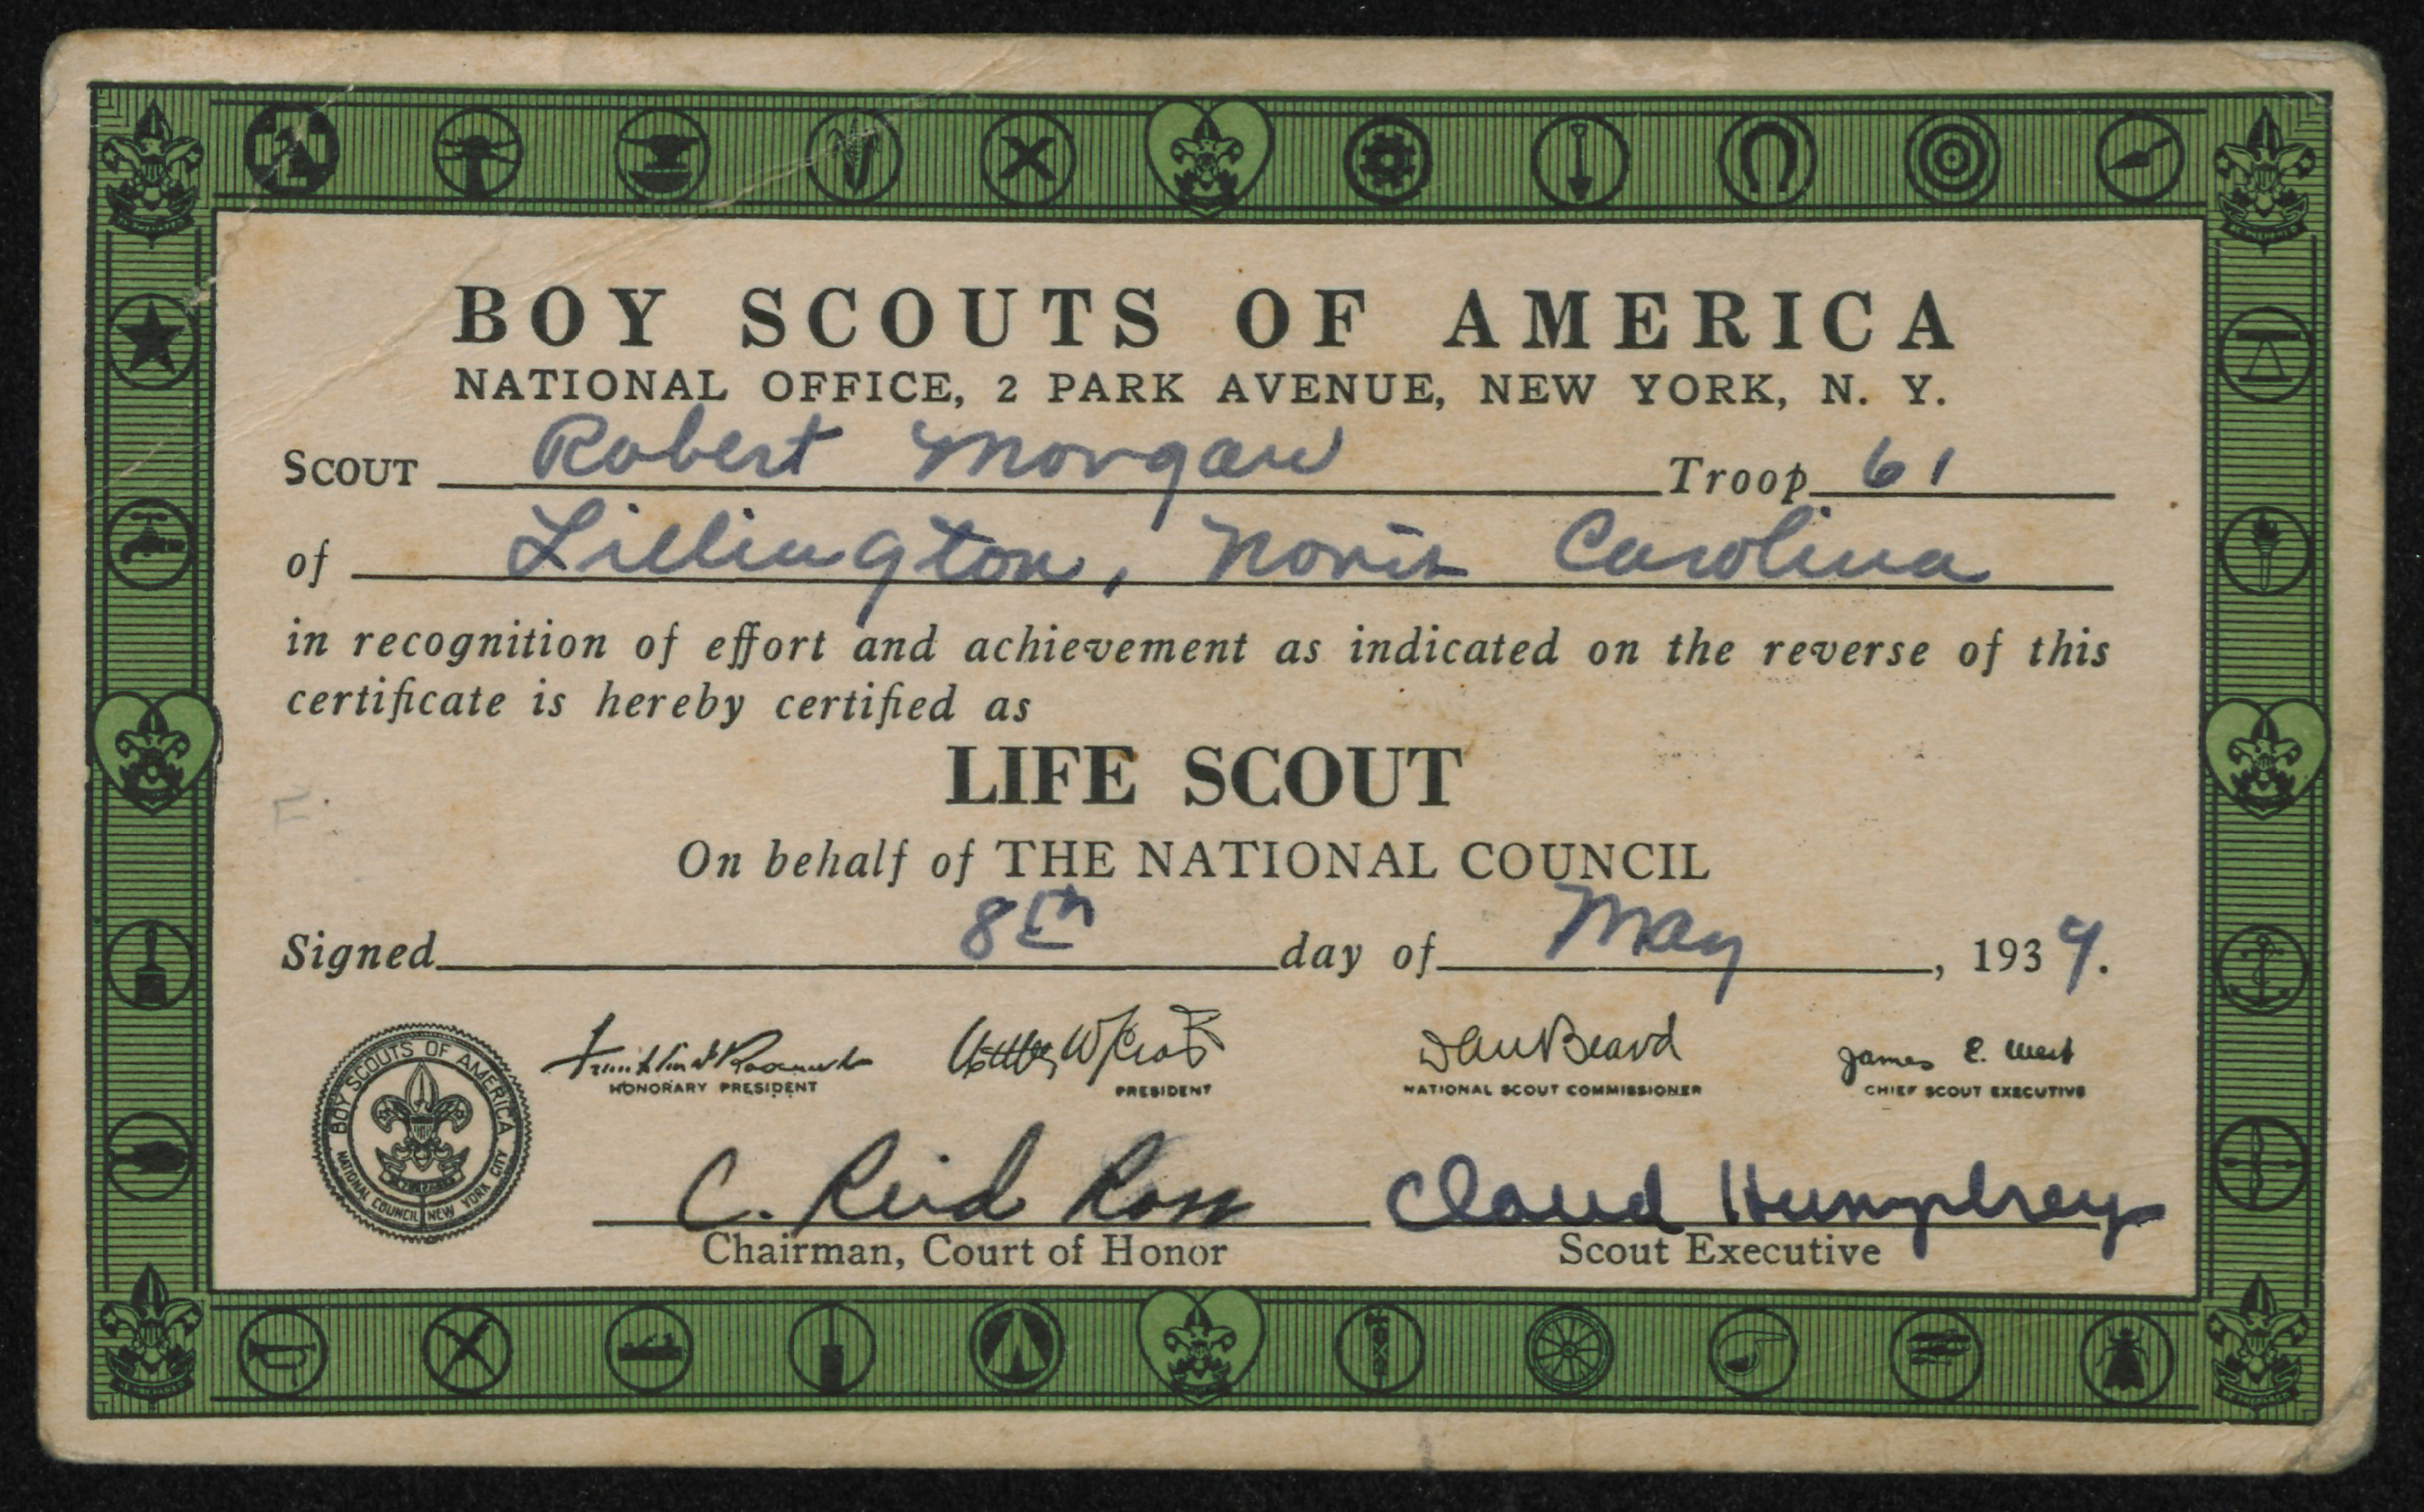 BOY SCOUTS OF AMERICA
NATIONAL OFFICE, 2 PARK AVENUE, NEW YORK, N. Y.
SCOUT Robert Morgan Troop 61
of Lillington, North Carolina
in recognition of effort and achievement as indicated on the reverse of this
certificate is hereby certified as
LIFE SCOUT
On behalf of THE NATIONAL COUNCIL
Signed 8th day of May, 1939.
Franklin D Roosevelt
HONORARY PRESIDENT
PRESIDENT
Dan Beard
NATIONAL SCOUT COMMISSIONER
James E. West
CHIEF SCOUT EXECUTIVE
BOY SCOUTS OF AMERICA
NATIONAL COUNCIL NEW YORK CITY
C. Reid Ross
Chairman, Court of Honor
Claud Humphrey
Scout Executive